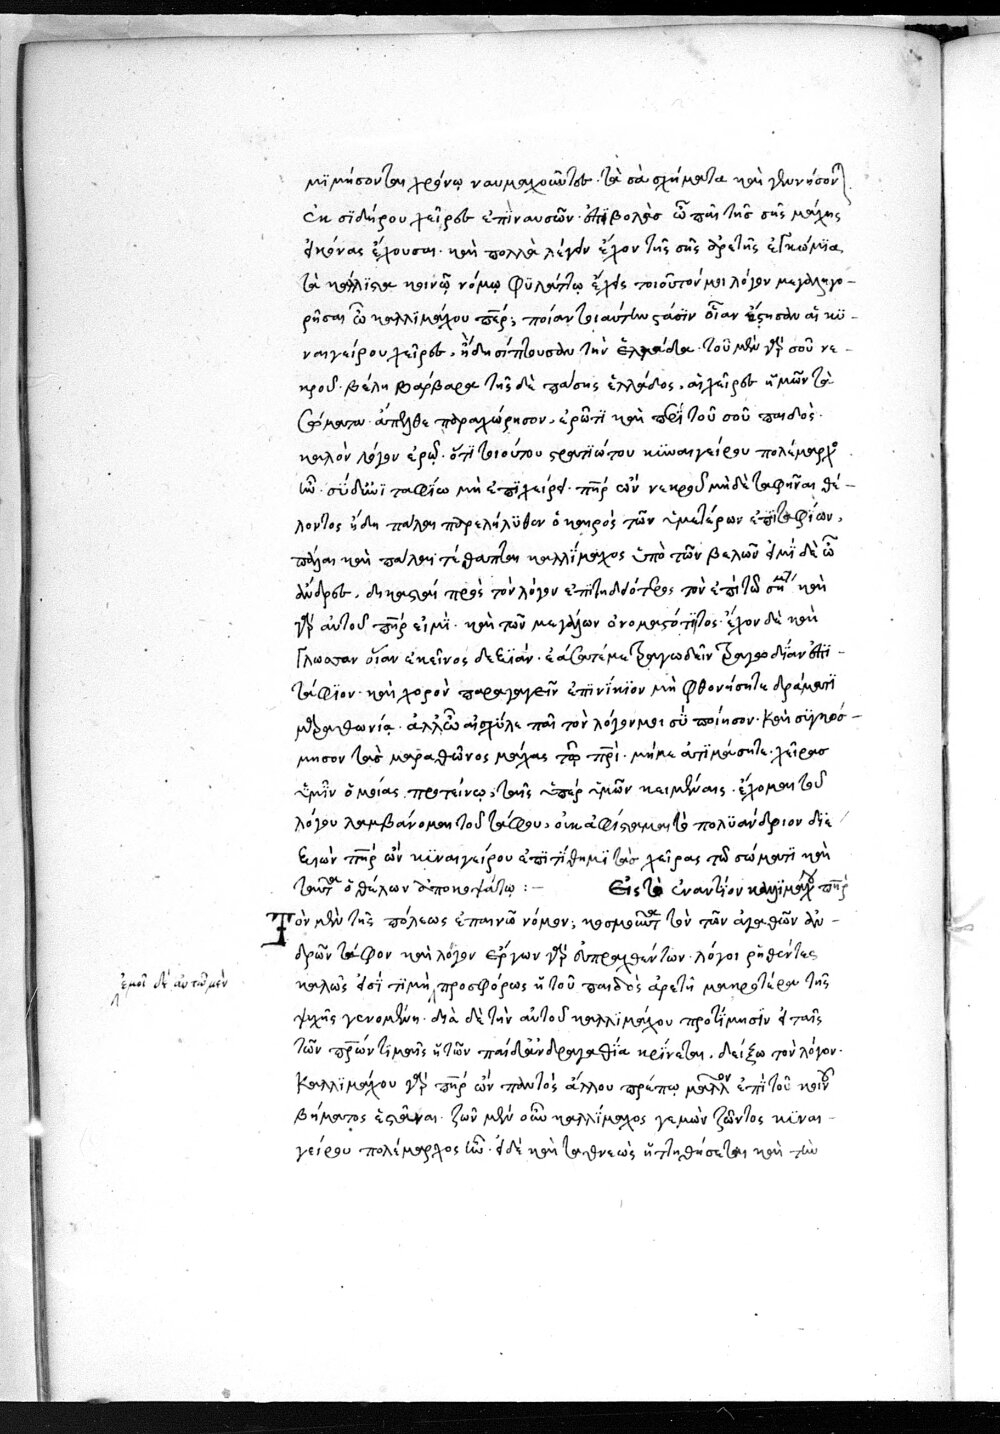 μιμήσονται χρόνῳ ναυμαχοῦντες. τὰ σὰ σχήματα καὶ γεννήσουσι
ἐκ σιδήρου χεῖρες ἐπὶ ναυσῶν. ἐπιβολὰς ὦ παῖ τῆς σῆς μάχης
εἰκόνας ἔχουσαι. καὶ πολλὰ λέγειν ἔχων τῆς σῆς ἀρετῆς ἐγκώμια
τὰ κάλλιστα κοινῷ νόμῳ φυλάττω ἔχεις τοιοῦτόν μοι λόγον μεγαληγο-
ρῆσαι ὦ καλλιμάχου πάτερ; ποίαν τοιαύτην στάσιν οἵαν ἔστησαν αἱ κυ-
ναιγείρου χεῖρες, ἤδη σίπτουσαν τὴν ἑλλάδα. τοῦ μὲν γὰρ σοῦ νε-
κροῦ. βέλη βάρβαρα τῆς δὲ πάσης ἑλλάδος, αἱ χεῖρες ἡμῶν τὰ
σώματα. ἄπελθε παραχώρησον, ἐρῶ τι καὶ περὶ τοῦ σοῦ παιδός.
καλὸν λόγον ἐρῶ. ὅτι τοιούτου στρατιώτου κυναιγείρου πολέμαρχος
ἦν. σὺ δ' ἐν τάφῳ μὴ ἐπιχείρει. πατὴρ ὢν νεκροῦ μηδὲ ταφῆναι θέ-
λοντος ἤδη πάλαι παρελήλυθεν ὁ καιρὸς τῶν ὑμετέρων ἐπιταφίων,
πάλαι καὶ πάλαι τέθαπται καλλίμαχος ὑπὸ τῶν βελῶν εἰμὶ δὲ ὦ
ἄνδρες, δικασταὶ πρὸς τὸν λόγον ἐπιτηδειότερος τὸν ἐπὶ τῷ σήματι καὶ
γὰρ αὐτοῦ πατὴρ εἰμὶ. καὶ τῶν μεγάλων ὀνομαστότητος. ἔχον δὲ καὶ
Γλῶσσαν οἵαν ἐκεῖνος δεξιάν. ἐάσατέ με τραγῳδεῖν τραγῳδίαν ἐπι-
τάφιον. καὶ χορὸν παραγαγεῖν ἐπινίκιον μὴ φθονήσητε δράματι
μαραθωνίῳ. ἀλλ' ὦ αἰσχύλε παῖ τὸν λόγον μοι σὺ ποίησον. Καὶ συγκρό-
τησον τὰς μαραθῶνος μάχας τῷ πατρί. μή με ἀτιμάσητε. χεῖρας
ὑμῖν ὁμοίας προτείνω, ταῖς ὑπὲρ ὑμῶν κειμέναις. ἔχομαι τοῦ
λόγου λαμβάνομαι τοῦ τάφου, οὐκ ἀφίσταμαι τὸ πολυάνδριον διε
ξιὼν πατὴρ ὢν κυναιγείρου ἐπιτίθημι τὰς χεῖρας τῷ σώματι καὶ
ταῦτα ὁ θέλων ἀποκοψάτω :– Εἰς τὸ ἐναντίον καλλιμάχου πατήρ
Τὸν μὲν τῆς πόλεως ἐπαινῶ νόμον, κοσμοῦντα τὸν τῶν ἀγαθῶν ἀν-
δρῶν τάφον καὶ λόγον ἔργων γὰρ εὖ πραχθέντων. λόγοι ῥηθέντες
καλῶς εἰσὶ τιμὴ προσφόρως ἡ τοῦ παιδὸς ἀρετὴ μακροτέρα τῆς
ψυχῆς γενομένη. διὰ δὲ τὴν αὐτοῦ καλλιμάχου προτίμησιν εἰ ταῖς
τῶν πατέρων τιμαῖς ἡ τῶν παίδων ἀνδραγαθία κρίνεται, δείξω τὸν λόγον.
Καλλιμάχου γὰρ πατὴρ ὢν παντὸς ἄλλου πρέπω μᾶλλον ἐπὶ τοῦ κοινοῦ
βήματος ἑστάναι. ζῶν μὲν οὖν καλλίμαχος γεμὼν ζῶντος κυναι-
γείρου πολέμαρχος ἦν. εἰ δὲ καὶ τεθνεὼς ἡττηθήσεται καὶ τῶ
ἐμοὶ δέ αὐτῶ μὲν